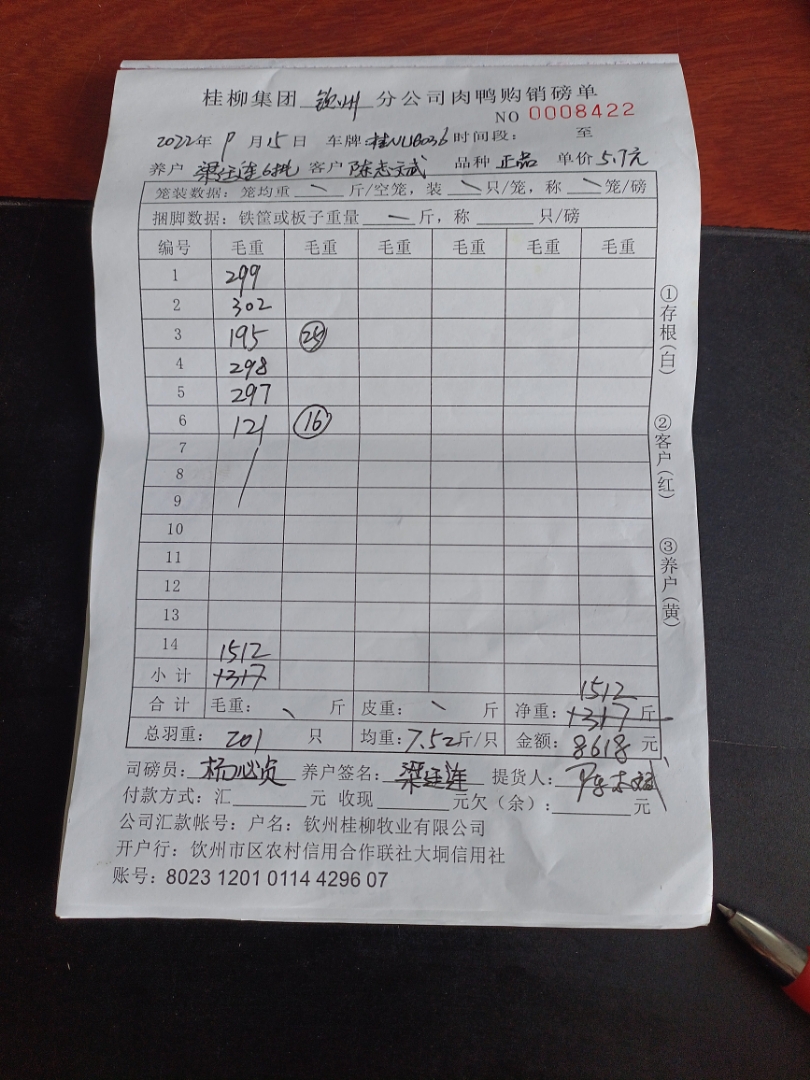 桂柳集团 钦州 分公司肉鸭购销磅单
NO 0008422
2022年 9 月 15 日 车牌: 时间段: 至
养户 梁廷连6批 客户 陈志斌 品种 正品 单价 5.7元
笼装数据: 笼均重 \ 斤/空笼, 装 \ 只/笼, 称 \ 笼/磅
捆脚数据: 铁筐或板子重量 \ 斤, 称 只/磅
编号 毛重 毛重 毛重 毛重 毛重 毛重
1 299
2 302
3 195 25
4 298
5 297
6 121 16
7
8
9
10
11
12
13
14 1512
小计 1317
1512
合计 毛重: \ 斤 皮重: \ 斤 净重: 1317 斤
总羽重: 201 只 均重: 7.52 斤/只 金额: 8618 元
司磅员: 养户签名: 梁廷连 提货人:
付款方式: 汇 元 收现 元欠(余): 元
公司汇款帐号: 户名: 钦州桂柳牧业有限公司
开户行: 钦州市区农村信用合作联社大垌信用社
账号: 8023 1201 0114 4296 07
①存根(白)
②客户(红)
③养户(黄)